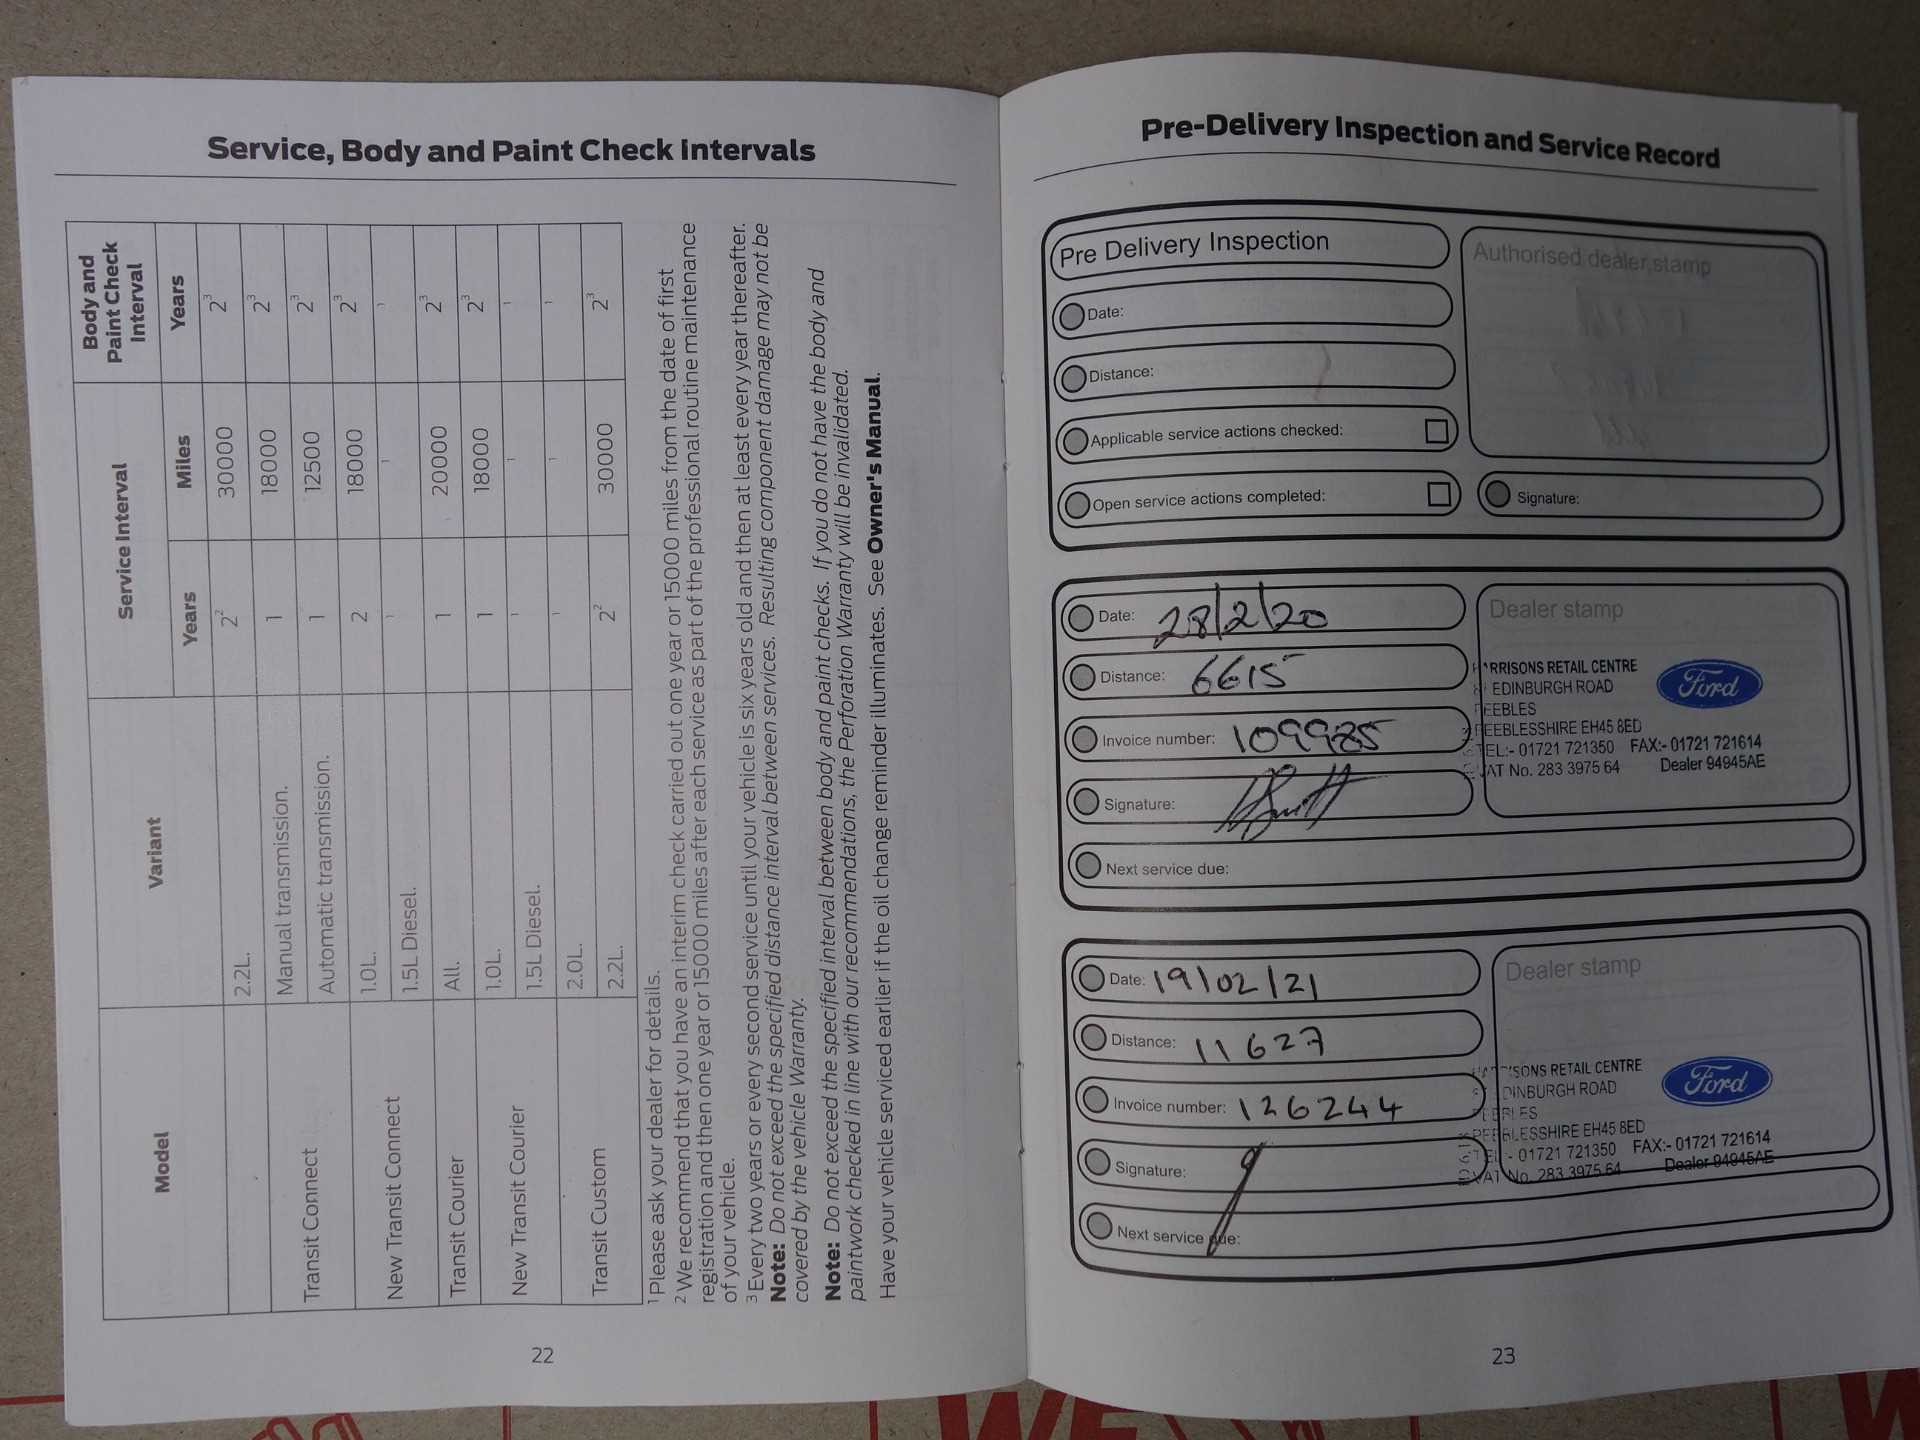 Service, Body and Paint Check Intervals
Model Variant Service Interval Body and Paint Check Interval
Years Miles Years
2.2L. 2² 30000 2³
Transit Connect Manual transmission. 1 18000 2³
Automatic transmission. 1 12500 2³
New Transit Connect 1.0L. 2 18000 2³
1.5L Diesel. ¹ ¹ ¹
Transit Courier All. 1 20000 2³
New Transit Courier 1.0L. 1 18000 2³
1.5L Diesel. ¹ ¹ ¹
Transit Custom 2.0L. ¹ ¹ ¹
2.2L. 2² 30000 2³
¹ Please ask your dealer for details.
² We recommend that you have an interim check carried out one year or 15000 miles from the date of first
registration and then one year or 15000 miles after each service as part of the professional routine maintenance
of your vehicle.
³ Every two years or every second service until your vehicle is six years old and then at least every year thereafter.
Note: Do not exceed the specified distance interval between services. Resulting component damage may not be
covered by the vehicle Warranty.
Note: Do not exceed the specified interval between body and paint checks. If you do not have the body and
paintwork checked in line with our recommendations, the Perforation Warranty will be invalidated.
Have your vehicle serviced earlier if the oil change reminder illuminates. See Owner's Manual.
22
Pre-Delivery Inspection and Service Record
Pre Delivery Inspection
Date:
Distance:
Applicable service actions checked:
Open service actions completed:
Authorised dealer stamp
Signature:
Date: 28/2/20
Distance: 6615
Invoice number: 109985
Signature:
Next service due:
Dealer stamp
ARRISONS RETAIL CENTRE
EDINBURGH ROAD
PEEBLES
PEEBLESSHIRE EH45 8ED
TEL:- 01721 721350 FAX:- 01721 721614
VAT No. 283 3975 64 Dealer 94945AE
Ford
Date: 19/02/21
Distance: 11627
Invoice number: 126244
Signature:
Next service due:
Dealer stamp
RISONS RETAIL CENTRE
DINBURGH ROAD
PEEBLES
PEEBLESSHIRE EH45 8ED
TEL:- 01721 721350 FAX:- 01721 721614
VAT No. 283 3975 64 Dealer 94945AE
Ford
23
WE
W